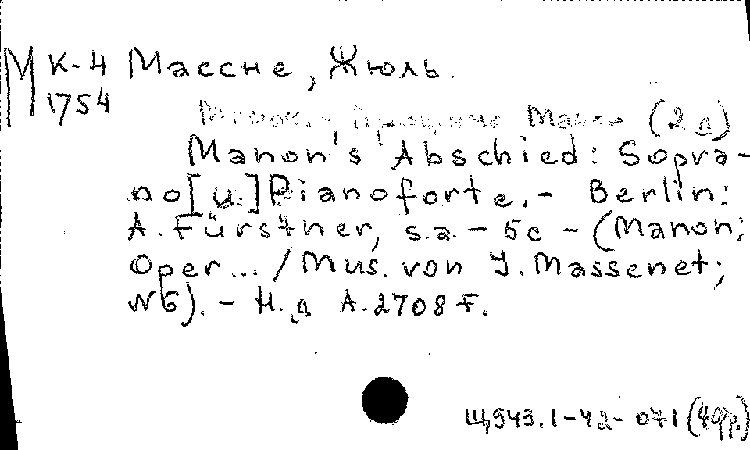 М К-4 Массне, Жюль.
1754
Манон. Прощание Манон (2 д)
Manon's Abschied: Sopra-
no [u.] Pianoforte. - Berlin:
A. Fürstner, s.a. - 5 с - (Manon:
Oper... / Mus. von J. Massenet;
N6). - Н.д A. 2708 F.
Щ943.1-42-071 (4фр.)